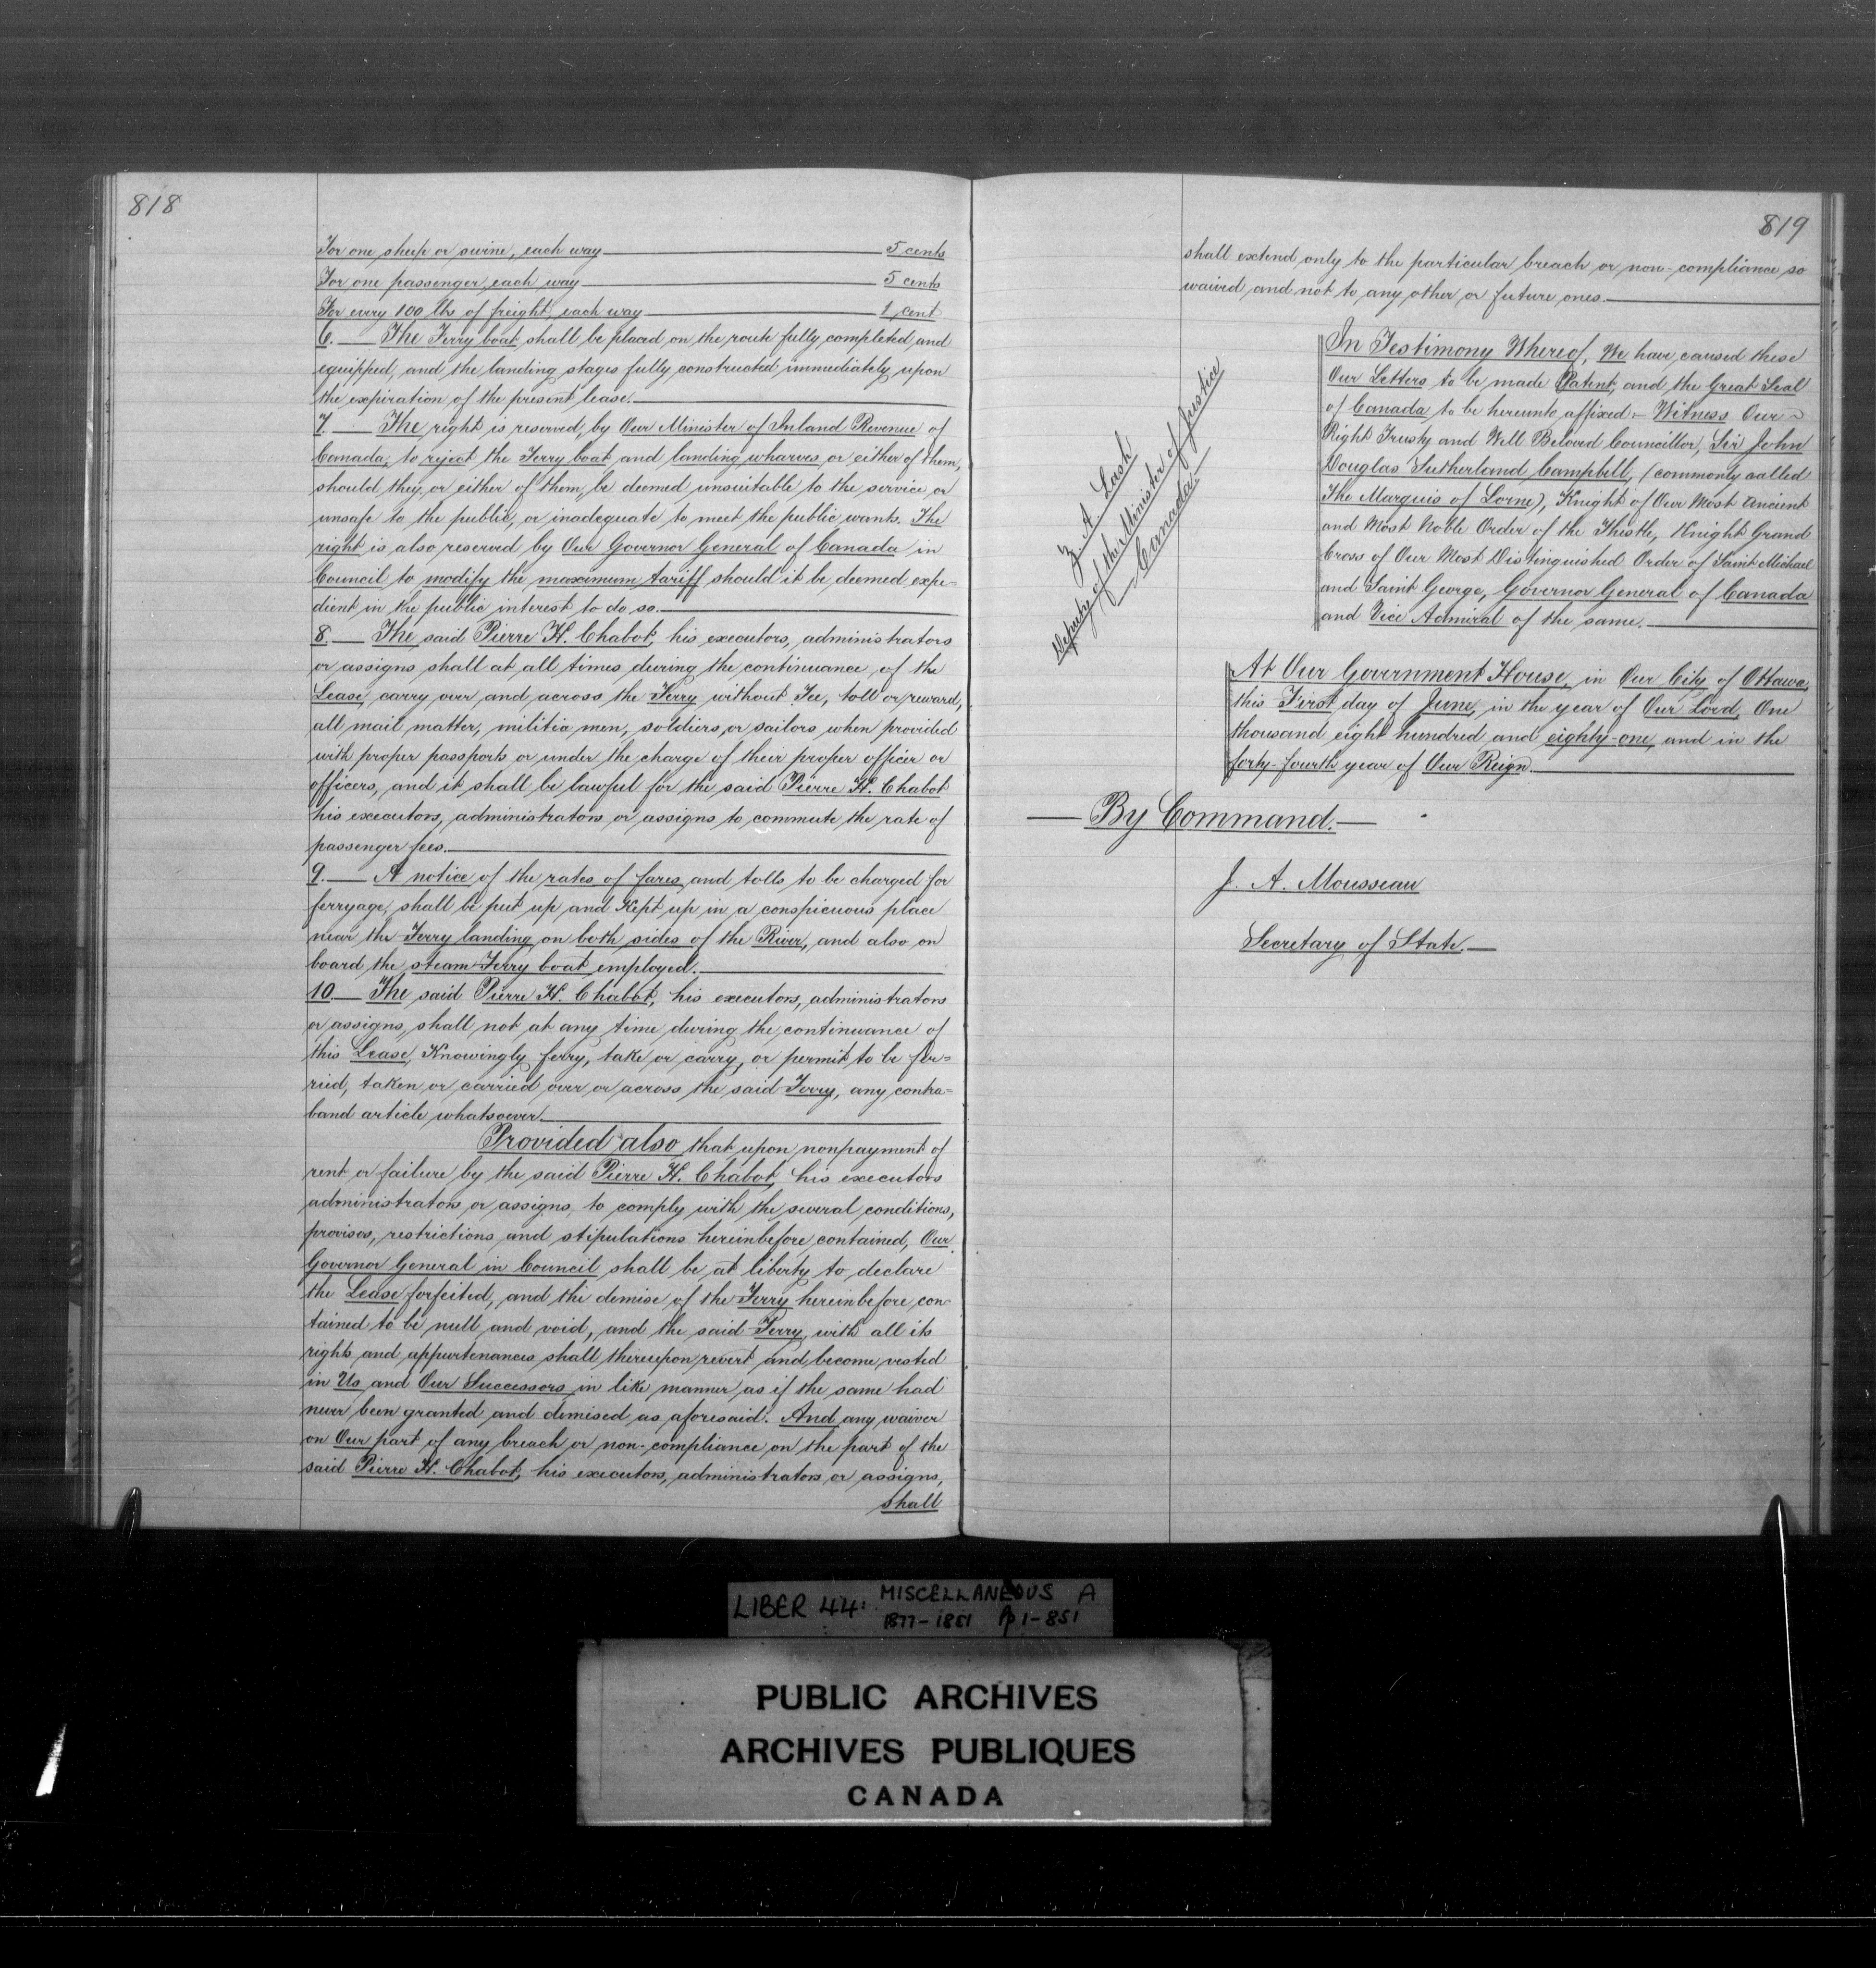 818
For one sheep or swine, each way 5 cents
For one passenger, each way 5 cents
For every 100 lbs of freight, each way 1 cent
6. The Ferry boat, shall be placed on the route fully completed and
equipped, and the landing stages fully constructed immediately upon
the expiration of the present lease.
7. The right is reserved, by Our Minister of Inland Revenue of
Canada, to reject the Ferry boat and landing wharves or either of them,
should they, or either of them, be deemed unsuitable to the service or
unsafe to the public, or inadequate to meet the public wants. The
right is also reserved by Our Governor General of Canada in
Council to modify the maximum tariff should it be deemed expe=
dient in the public interest to do so.
8. The said Pierre H. Chabot, his executors, administrators
or assigns shall at all times during the continuance of the
Lease, carry over and across the Ferry without Fee, toll or reward,
all mail matter, militia men, soldiers, or sailors when provided
with proper passports or under the charge of their proper officer or
officers, and it shall be lawful for the said Pierre H. Chabot
his executors, administrators or assigns to commute the rate of
passenger fees.
9. A notice of the rates of fares and tolls to be charged for
ferryage, shall be put up and Kept up in a conspicuous place
near the Ferry landing on both sides of the River, and also on
board the steam Ferry boat employed.
10. The said Pierre H. Chabot, his executors, administrators
or assigns, shall not at any time during the continuance of
this Lease, Knowingly ferry, take or carry, or permit to be fer=
ried, taken or carried over or across the said Ferry, any contra=
band article whatsoever.
Provided also that upon nonpayment of
rent or failure by the said Pierre H. Chabot, his executors
administrators or assigns, to comply with the several conditions,
provisos, restrictions and stipulations hereinbefore contained, Our
Governor General in Council shall be at liberty to declare
the Lease forfeited, and the demise of the Ferry hereinbefore con-
tained to be null and void, and the said Ferry with all its
rights and appurtenances shall thereupon revert and become vested
in Us and Our Successors in like manner as if the same had
never been granted and demised as aforesaid. And any waiver
on Our part of any breach or non-compliance on the part of the
said Pierre H. Chabot, his executors, administrators or assigns,
shall
819
shall extend only to the particular breach or non-compliance so
waived and not to any other or future ones.
Z. A. Lash
Deputy of the Minister of Justice
Canada.
In Testimony Whereof, We have caused these
Our Letters to be made Patent, and the Great Seal
of Canada to be hereunto affixed:- Witness Our
Right Trusty and Well Beloved Councillor, Sir John
Douglas Sutherland Campbell, (commonly called
The Marquis of Lorne), Knight of Our Most Ancient
and Most Noble Order of the Thistle, Knight Grand
Cross of Our Most Distinguished Order of Saint Michael
and Saint George, Governor General of Canada
and Vice Admiral of the same.
At Our Government House, in Our City of Ottawa,
this First day of June, in the year of Our Lord, One
thousand eight hundred and eighty-one, and in the
forty-fourth year of Our Reign.
By Command.
J. A. Mousseau
Secretary of State.
LIBER 44: MISCELLANEOUS A
1877-1881 Pp 1-851
PUBLIC ARCHIVES
ARCHIVES PUBLIQUES
CANADA